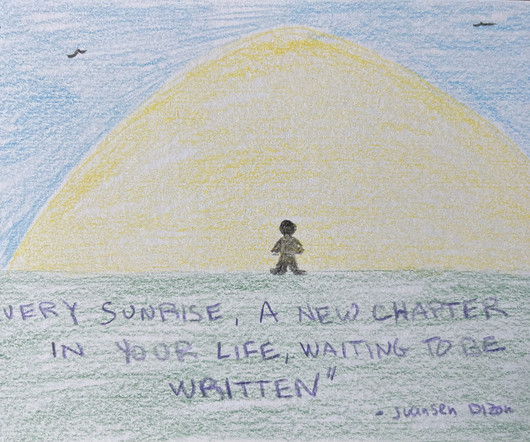 VERY SUNRISE, A NEW CHAPTER
IN YOUR LIFE, WAITING TO BE
WRITTEN"
- Juansen Dizon